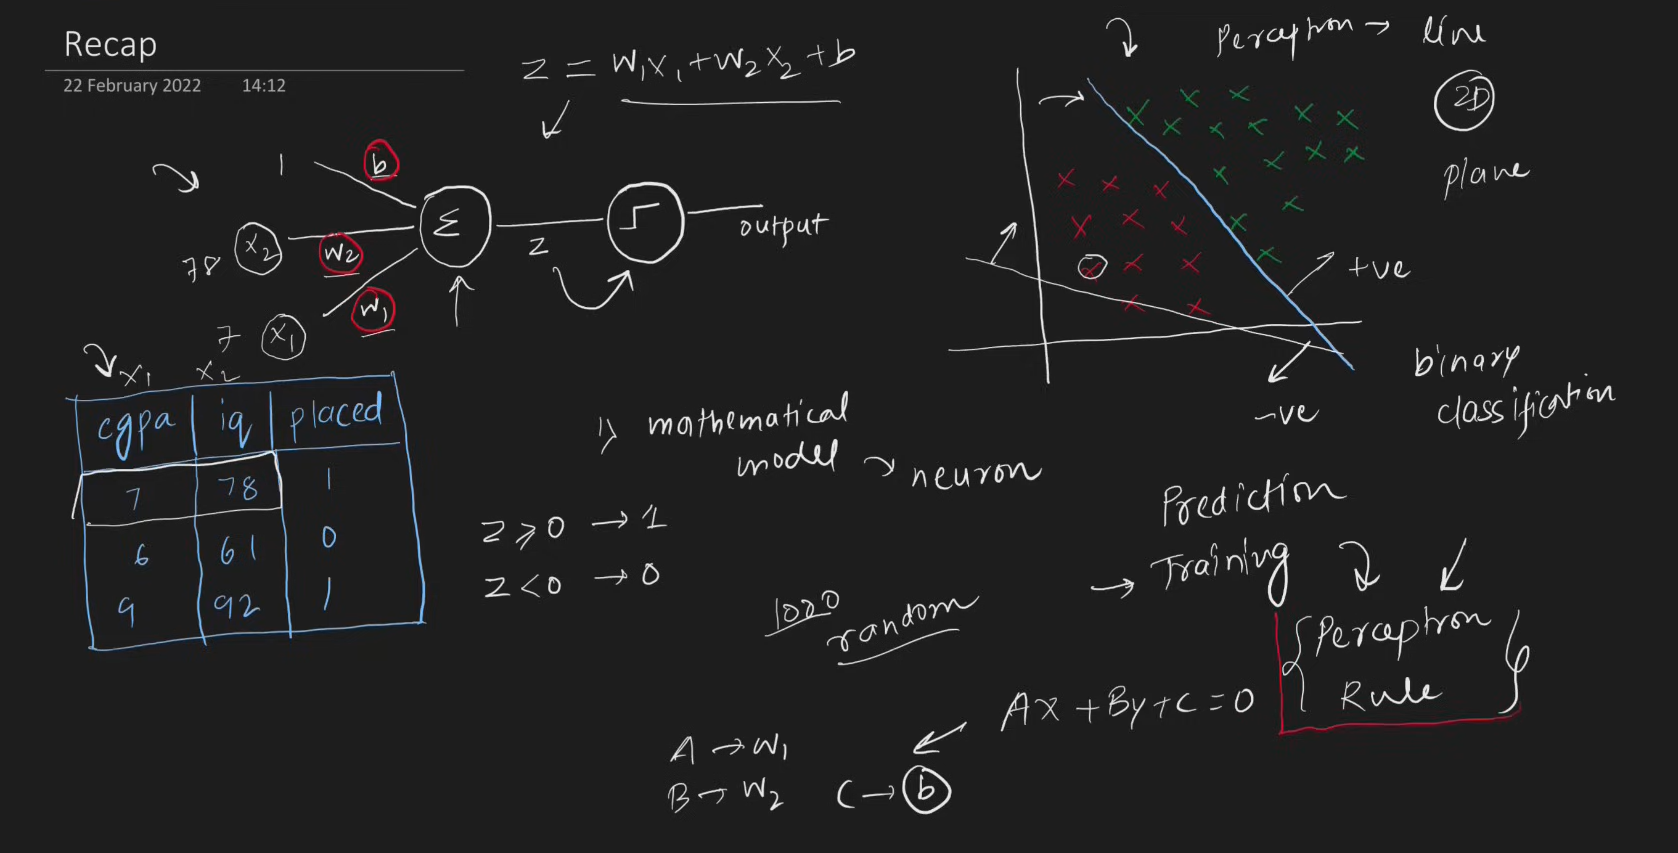 Recap
22 February 2022 14:12
Z = W1X1 + W2X2 + b
1
b
78 X2
W2
7 X1
W1
Σ
Z
output
X1 X2
cgpa iq placed
7 78 1
6 61 0
9 92 1
1) mathematical
model → neuron
Z ≥ 0 → 1
Z < 0 → 0
1000
random
A → W1
B → W2 C → b
Perceptron → line
2D
plane
+ve
-ve
binary
classification
Prediction
→ Training
Perceptron
Rule
AX + By + C = 0